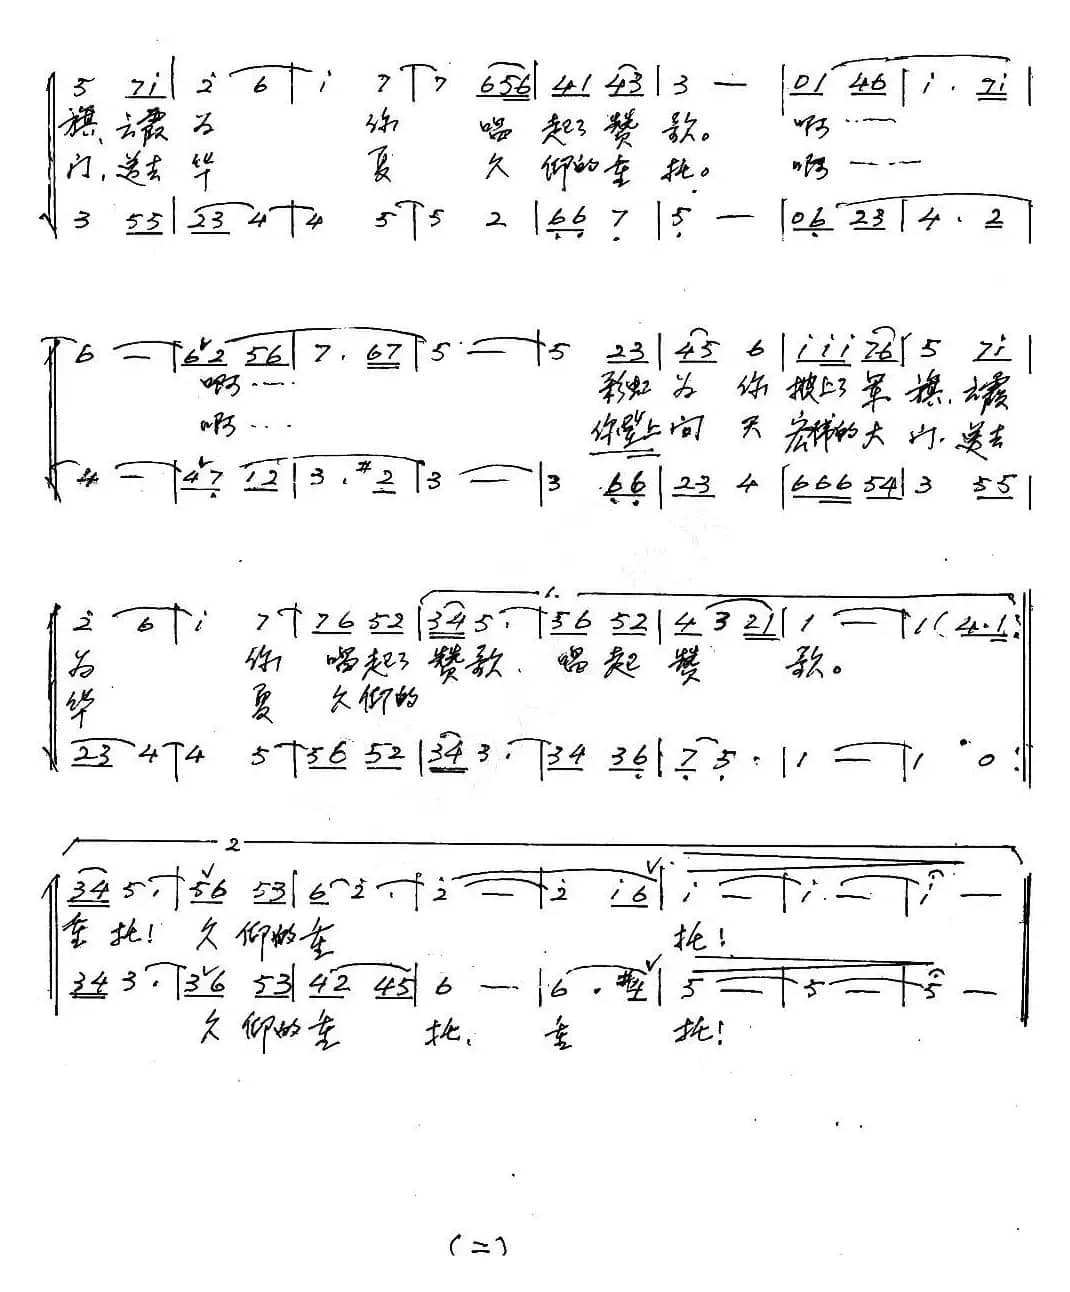 5 7i | 2 6 | i 7 | 7 656 | 41 43 | 3 — | 01 46 | i. 7i |
旗,云霞为 你 唱 起了赞 歌。 啊……
门,送去华 夏 久 仰的重 托。 啊……
3 55 | 23 4 | 4 5 | 5 2 | 66 7 | 5 — | 06 23 | 4. 2 |
6 — | 62 56 | 7. 67 | 5 — | 5 23 | 45 6 | iii 76 | 5 7i |
啊…… 彩虹 为 你 披上了军 旗,云霞
啊…… 你登上问 天 宏伟的大 门,送去
4 — | 47 12 | 3. #2 | 3 — | 3 66 | 23 4 | 666 54 | 3 55 |
1.
2 6 | i 7 | 76 52 | 34 5. | 56 52 | 4 3 21 | 1 — | 1 (4.1 :
为 你 唱起了 赞歌、唱起 赞 歌。
华 夏 久仰的
23 4 | 4 5 | 56 52 | 34 3. | 34 36 | 7 5. | 1 — | 1 0 :
2
34 5. | 56 53 | 6 2. | 2 — | 2 i6 | i — | i. — | i —
重托! 久仰的重 托!
34 3. | 36 53 | 42 45 | 6 — | 6. #4 | 5 — | 5 — | 5 —
久仰的重 托, 重 托!
(二)